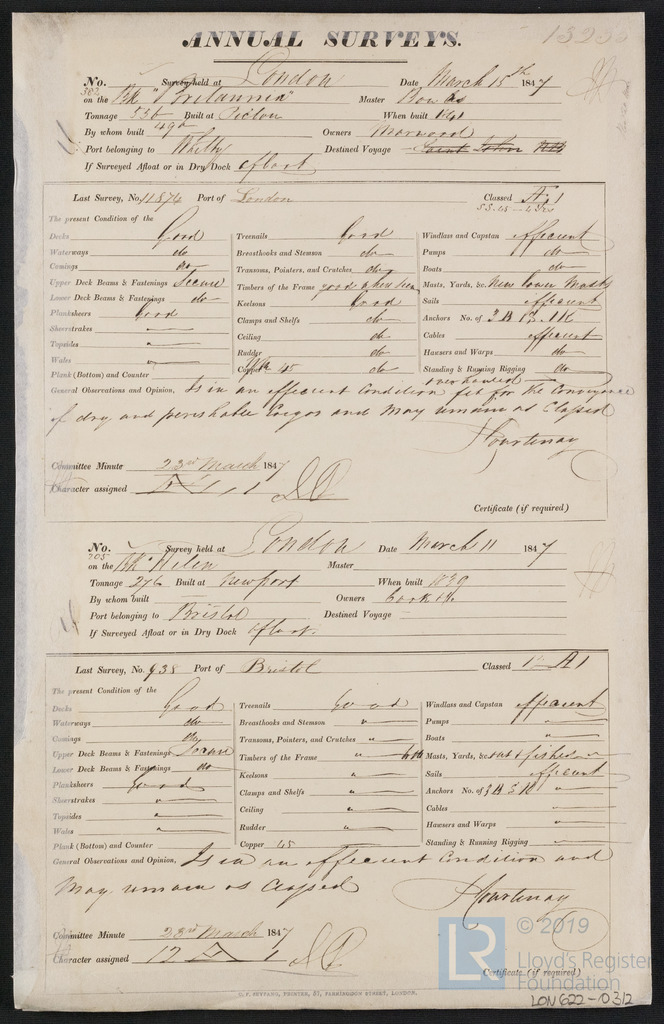 ANNUAL SURVEYS.
No. 302 Survey held at London Date March 15th 1847
on the Bk "Britannia" Master
Tonnage 556 Built at Pictou When built
By whom built Owners Marwood
490
Port belonging to Whitby Destined Voyage Saint John NB
If Surveyed Afloat or in Dry Dock afloat
Last Survey, No. 11874 Port of London Classed A 1
The present Condition of the
Decks Good Treenails Good Windlass and Capstan efficient
Waterways do Breasthooks and Stemson do Pumps do
Comings do Transoms, Pointers, and Crutches do Boats do
Upper Deck Beams & Fastenings Secure Timbers of the Frame good when seen Masts, Yards, &c. New lower Masts
Lower Deck Beams & Fastenings do Keelsons Good Sails efficient
Planksheers Good Clamps and Shelfs do Anchors No. of 3 B 1 S. 1 K
Sheerstrakes " Ceiling do Cables efficient
Topsides " Rudder do Hawsers and Warps do
Wales " Copper 45 Standing & Running Rigging do
Plank (Bottom) and Counter overhauled
General Observations and Opinion, Is in an efficient Condition fit for the Conveyance
of dry and perishable Cargos and May remain as Classed
Courtenay
Committee Minute 23rd March 1847
Character assigned
Certificate (if required)
No. 705 Survey held at London Date March 11 1847
on the Bk "Helen Master
Tonnage 276 Built at Newport When built 1839
By whom built Owners Cook &c.
Port belonging to Bristol Destined Voyage
If Surveyed Afloat or in Dry Dock afloat.
Last Survey, No. 938 Port of Bristol Classed A 1
The present Condition of the
Decks Good Treenails Good Windlass and Capstan efficient
Waterways do Breasthooks and Stemson " Pumps "
Comings do Transoms, Pointers, and Crutches " Boats "
Upper Deck Beams & Fastenings Secure Timbers of the Frame " Masts, Yards, &c. fished
Lower Deck Beams & Fastenings do Keelsons " Sails efficient
Planksheers Good Clamps and Shelfs " Anchors No. of 3 B S K "
Sheerstrakes " Ceiling " Cables "
Topsides " Rudder " Hawsers and Warps "
Wales " Copper 45 Standing & Running Rigging "
Plank (Bottom) and Counter
General Observations and Opinion, Is in an efficient Condition and
May remain as Classed
Courtenay
Committee Minute 23rd March 1847
Character assigned 12 A 1
Certificate (if required)
© 2019
LR Lloyd's Register
Foundation
LON622-0312